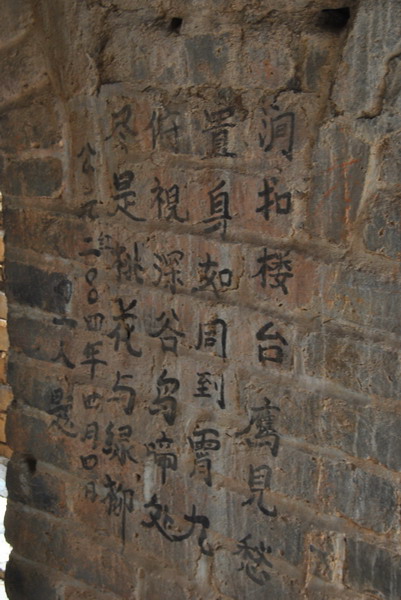 洞扣楼台鹰见愁
置身如同到霄九
俯視深谷鸟啼处
尽是红桃花与绿柳
公元二00四年四月口日
人题